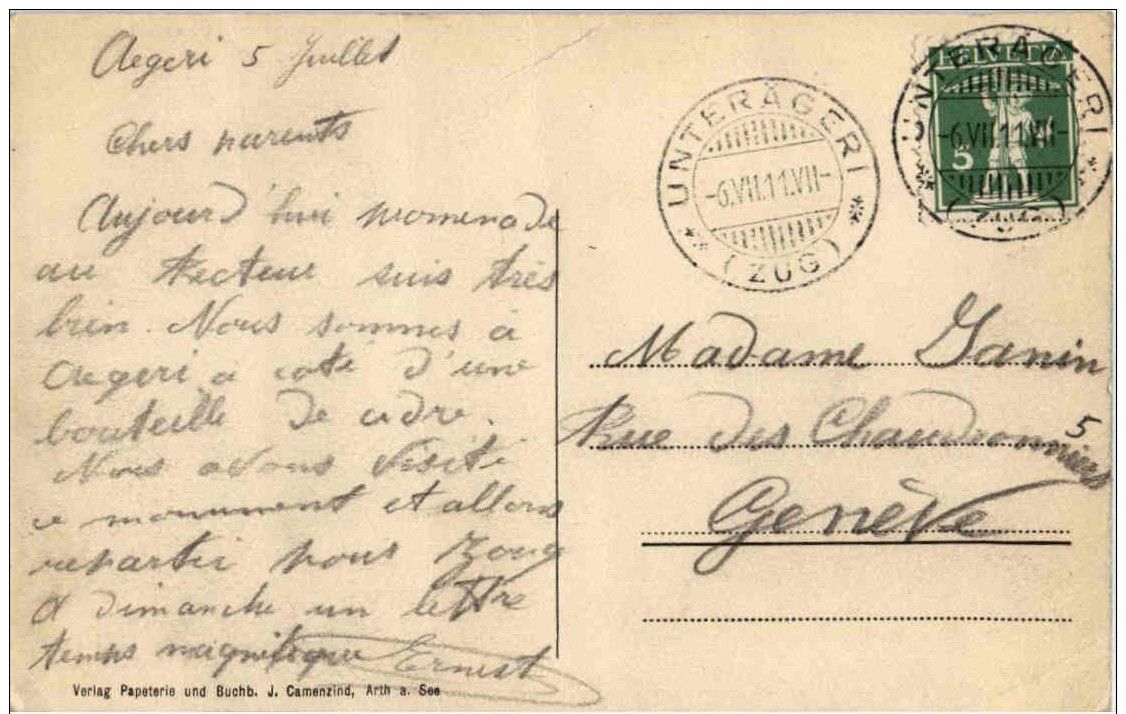 Aegeri 5 Juillet
Chers parents
Aujourd'hui promenade
au secteur suis très
bien. Nous sommes à
Aegeri à coté d'une
bouteille de cidre.
Nous avons visité
ce monument et allons
repartir pour Zoug
A dimanche un lettre
temps magnifique Ernest
Verlag Papeterie und Buchb. J. Camenzind, Arth a. See
UNTERÄGERI
-6.VII.11.VII-
(ZUG)
HELVETIA
5
UNTERÄGERI
-6.VII.11.VII-
(ZUG)
Madame Janin
Rue des Chaudronniers 5
Genève